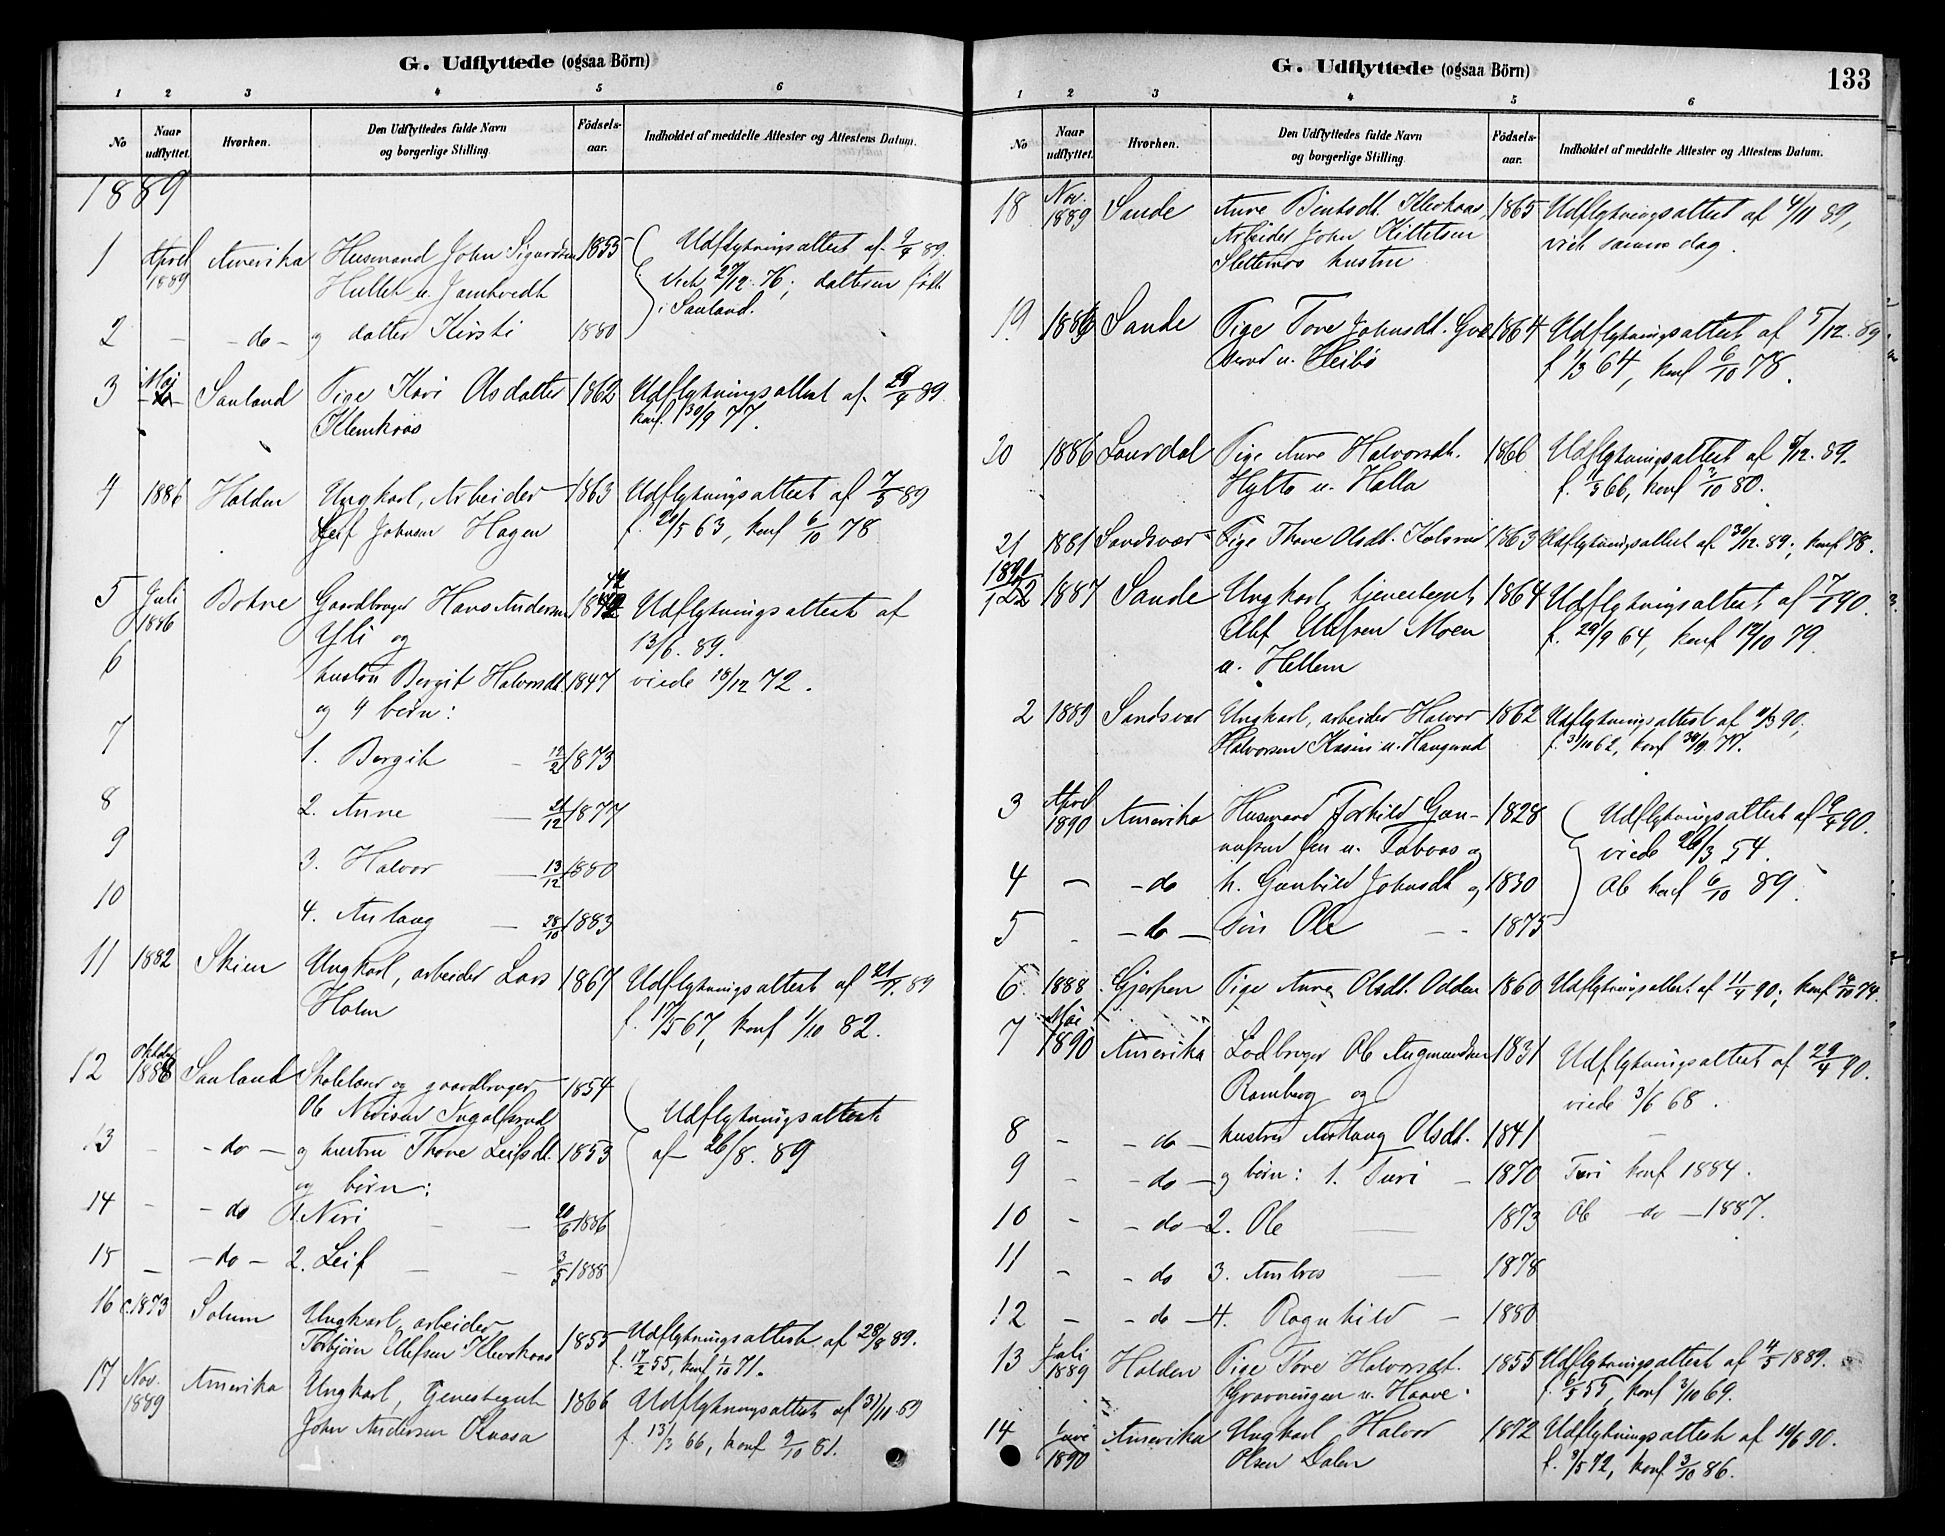 G. Udflyttede (ogsaa Börn)
1 2 3 4 5 6
No Naar udflyttet. Hvorhen. Den Udflyttedes fulde Navn og borgerlige Stilling. Födsels-aar. Indholdet af meddelte Attester og Attestens Datum.
1889
1 April 1889 Amerika Husmand John Sigurdsen 1853 Udflytningsattest af 9/4 89.
Hullet u. Jamtvedt viet 27/12 76; datteren født
2 - - do - og datter Kirsti 1880 i Sauland.
3 Maj - Sauland Pige Kari Olsdatter 1862 Udflytningsattest af 29/4 89.
konf. 30/9 77.
4 1886 Holden Ungkarl, Arbeider 1863 Udflytningsattest af 7/5 89
Leif Johnsen Hagen f. 26/5 63, konf 6/10 78
5 Juli 1886 Botne Gaardbruger Hans Andersen Udflytningsattest af
Yli og 13/6. 89.
6 hustru Bergit Halvorsdt. 1847 viede 18/12 72.
og 4 børn:
7 1. Bergit - 12/2 1873
8 2. Anne - 21/12 1877
9 3. Halvor - 13/12 1880
10 4. Aslaug - 28/10 1883
11 1882 Skien Ungkarl, arbeider Lars 1867 Udflytningsattest af 89
Holm f. 17/5 67, konf 1/10 82.
12 Oktober 1888 Sauland Skolelærer og gaardbruger 1854 Udflytningsattest
Ole Nirisen Ingolfsrud af 26/8. 89
13 - - do - og hustru Thone Leifsdt. 1853
og børn:
14 - - do 1. Niri - - 20/6 1886
15 - - do - 2. Leif - - 3/5 1888
16 c. 1873 Solum Ungkarl, arbeider
Torbjørn Ellefsen Klevkaas 1855 Udflytningsattest af 28/8 89.
f. 17/2 55, konf 1/10 71.
17 Nov. 1889 Amerika Ungkarl, tjenestegut 1866 Udflytningsattest af 31/10 89
John Andersen f. 13/3 66, konf 9/10 81.
G. Udflyttede (ogsaa Börn) 133
1 2 3 4 5 6
No Naar udflyttet. Hvorhen. Den Udflyttedes fulde Navn og borgerlige Stilling. Födsels-aar. Indholdet af meddelte Attester og Attestens Datum.
18 Nov. 1889 Sande Anne Klevkaas, 1865 Udflytningsattest af 4/11 89,
Arbeider John Kittelsen viet samme dag.
Slettemos hustru
19 Sande Pige Tove Johnsdt. 1864 Udflytningsattest af 5/12. 89
u. Heibø f 1/3 64, konf 6/10 78.
20 1886 Laurdal Pige Anne Halvorsdt. 1866 Udflytningsattest af 89.
Hytta u. Halla konf 3/10 80.
21 1881 Sandsvær Pige Thone Olsdt. Kolsrud 1863 Udflytningsattest af 30/12. 89; konf 78.
1890
1 22 1887 Sande Ungkarl, tjenestegut, 1864 Udflytningsattest af 90.
Olaf Olefsen Moen f. 29/9 64, konf 12/10 79.
u. Hellem
2 1889 Sandsvær Ungkarl, arbeider Halvor 1862 Udflytningsattest af 90,
Halvorsen Kasin u. Haugerud f. 31/10 62, konf 30/9 77.
3 April 1890 Amerika Husmand Torkild Gun- 1828 Udflytningsattest af 9/4 90.
u. og viede 26/3 54.
4 - - do h. Gunhild Johnsdt. og 1830 Ole konf 6/10 89.
5 - - do - søn Ole - - 1875
6 1888 Gjerpen Pige Anne Olsdt. Odden 1860 Udflytningsattest af 11/4 90; konf 74.
7 Mai 1890 Amerika Lodbruger Ole Augmundsen 1831 Udflytningsattest af 29/4 90.
Ramberg og viede 3/6 68.
8 - - do - hustru Aslaug Olsdt. 1841
9 - - do - og børn: 1. Turi - 1870 Turi konf 1884.
10 - - do - 2. Ole - 1873 Ole - do - 1887.
11 - - do 3. - 1878
12 - - do - 4. Ragnhild - 1880
13 Juli 1889 Holden Pige Tove Halvorsdt. 1855 Udflytningsattest af 4/5 1889.
Gravningen u. Haave. f. 6/5 55, konf 3/10 69.
14 Juni 1890 Amerika Ungkarl Halvor 1872 Udflytningsattest af 16/6 90.
Olsen Dalen f. 3/5 72, konf. 3/10 86.